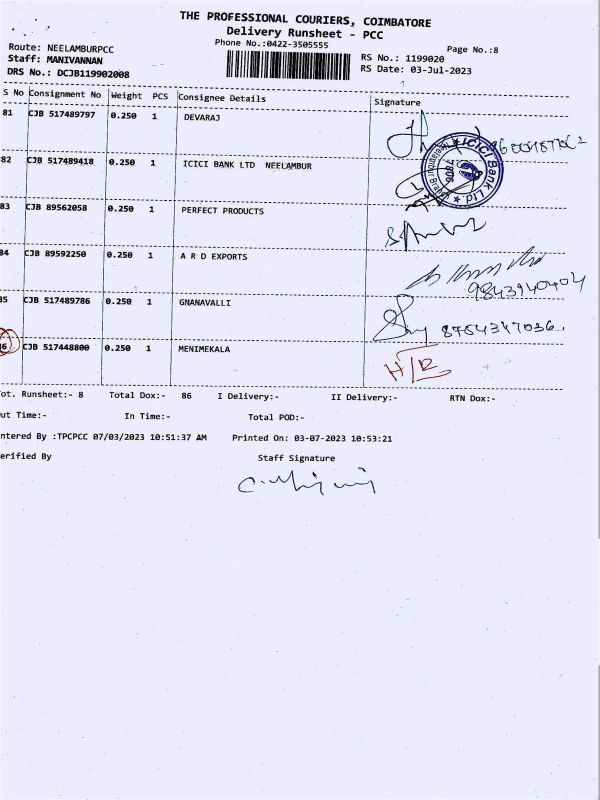 THE PROFESSIONAL COURIERS, COIMBATORE
Delivery Runsheet - PCC
Phone No.:0422-3505555
Page No.:8
Route: NEELAMBURPCC
RS No.: 1199020
Staff: MANIVANNAN
RS Date: 03-Jul-2023
DRS No.: DCJB119902008
S No Consignment No Weight PCS Consignee Details Signature
81 CJB 517489797 0.250 1 DEVARAJ
82 CJB 517489418 0.250 1 ICICI BANK LTD NEELAMBUR
ICICI Bank Ltd.
83 CJB 89562058 0.250 1 PERFECT PRODUCTS
84 CJB 89592250 0.250 1 A R D EXPORTS
9843940404
85 CJB 517489786 0.250 1 GNANAVALLI 8754347036.
86 CJB 517448800 0.250 1 MENIMEKALA
ot. Runsheet:- 8 Total Dox:- 86 I Delivery:- II Delivery:- RTN Dox:-
ut Time:- In Time:- Total POD:-
ntered By :TPCPCC 07/03/2023 10:51:37 AM Printed On: 03-07-2023 10:53:21
erified By Staff Signature